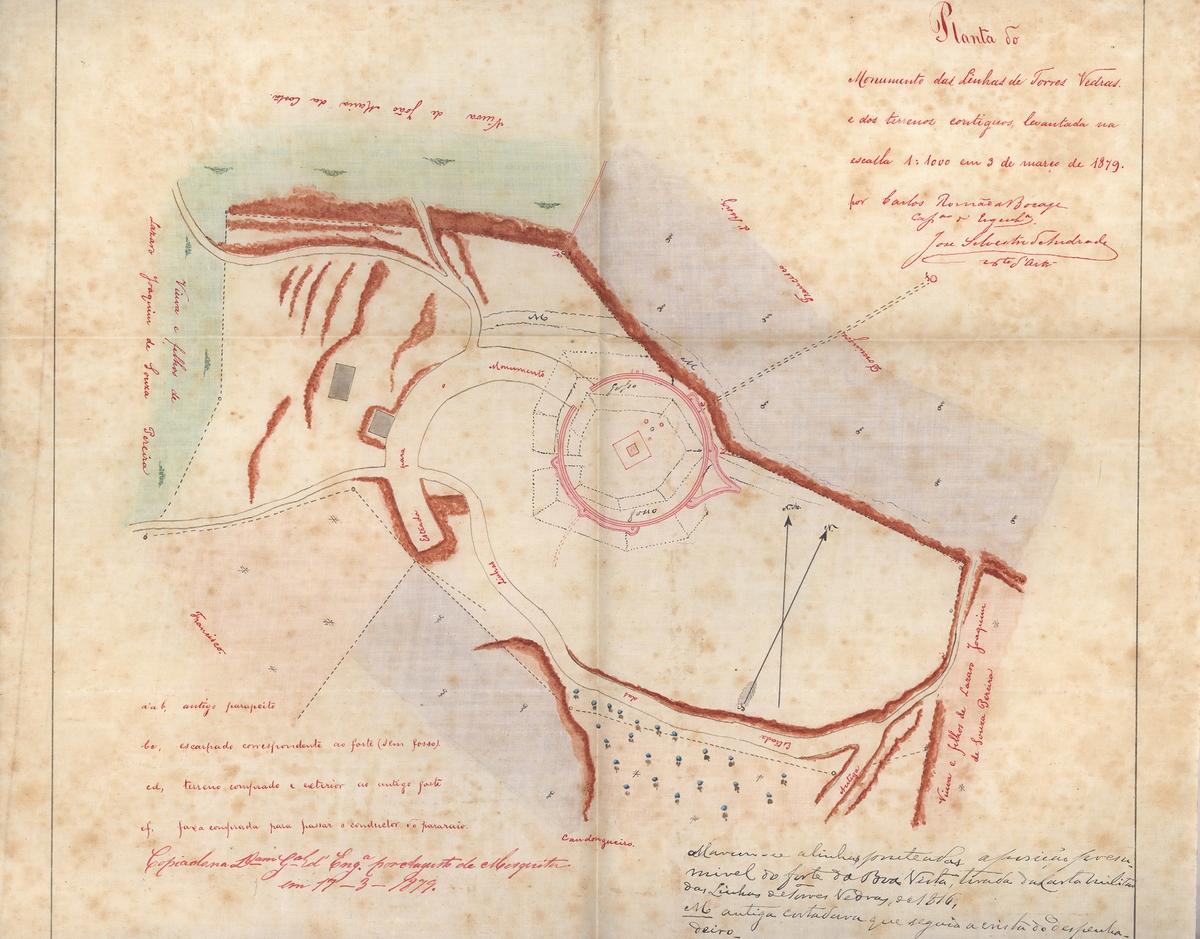 Planta do
Monumento das Linhas de Torres Vedras.
e dos terrenos contiguos, levantada na
escalla 1:1000 em 3 de março de 1879.
por Carlos Roma du Bocage
Cap.am d'Engenh.a
Jose Silvestre de Andrade
d'Arth.
Viuva de João Maria da Costa
Viuva e filhos de
Lazaro Joaquim de Souza Pereira
Francisco
Domingos
M
M
Monumento
fosso
fosso
para
Estrada
Linhas
das
Estrada
Antiga
N.
Francisco.
Viuva e filhos de Lazaro Joaquim
de Souza Pereira
Candongueiro.
a'ab, antigo parapeito
bc, escarpado correspondente ao forte (sem fosso)
cd, terreno comprado e exterior ao antigo forte
ef, faxa comprada para passar o conductor do pararaio.
Copiada na D am G.al d' Eng.a por Augusto de Mesquita
em 17-3-1879.
Marcou-se a linhas ponteadas a posição presu-
mivel do forte da Boa Vista, tirada da Carta militar
das Linhas de Torres Vedras, de 1810.
M antiga cortadura que seguia a crista do despenha-
deiro.